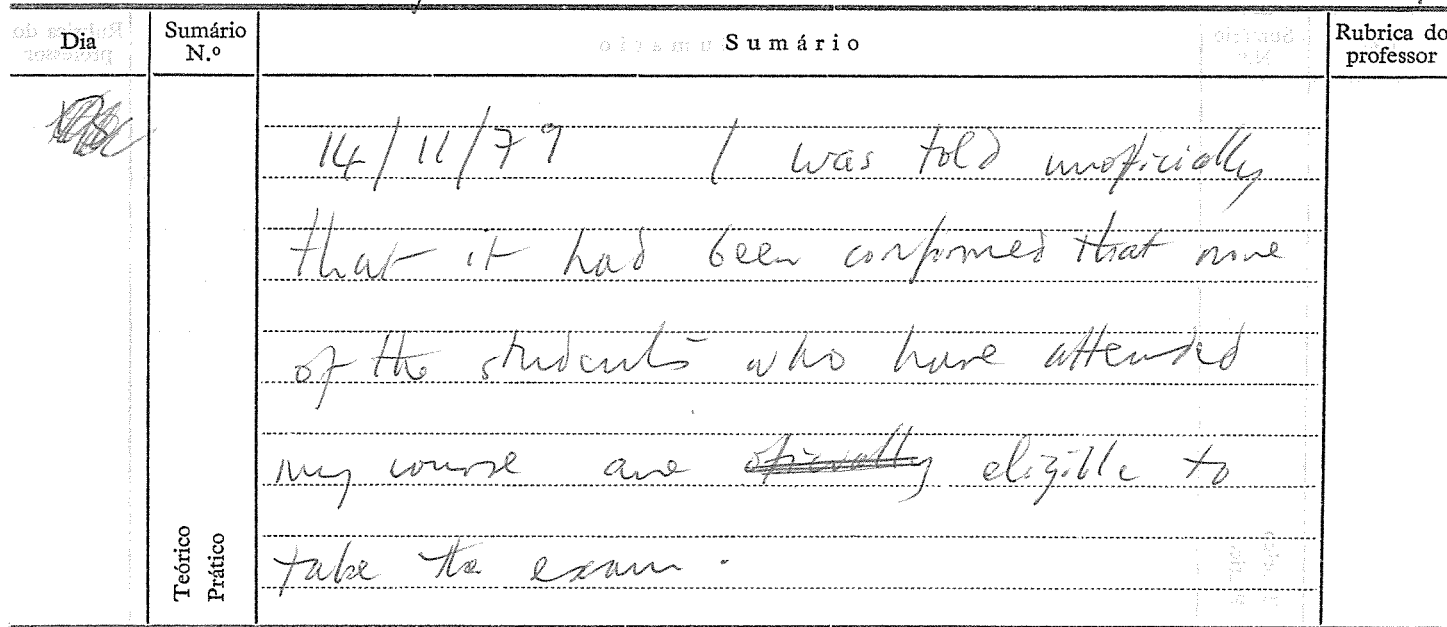 Dia
Sumário N.º
Sumário
Rubrica do professor
14/11/79 I was told unoficially
that it had been confirmed that none
of the students who have attended
my course are oficially eligible to
take the exam.
Teórico
Prático